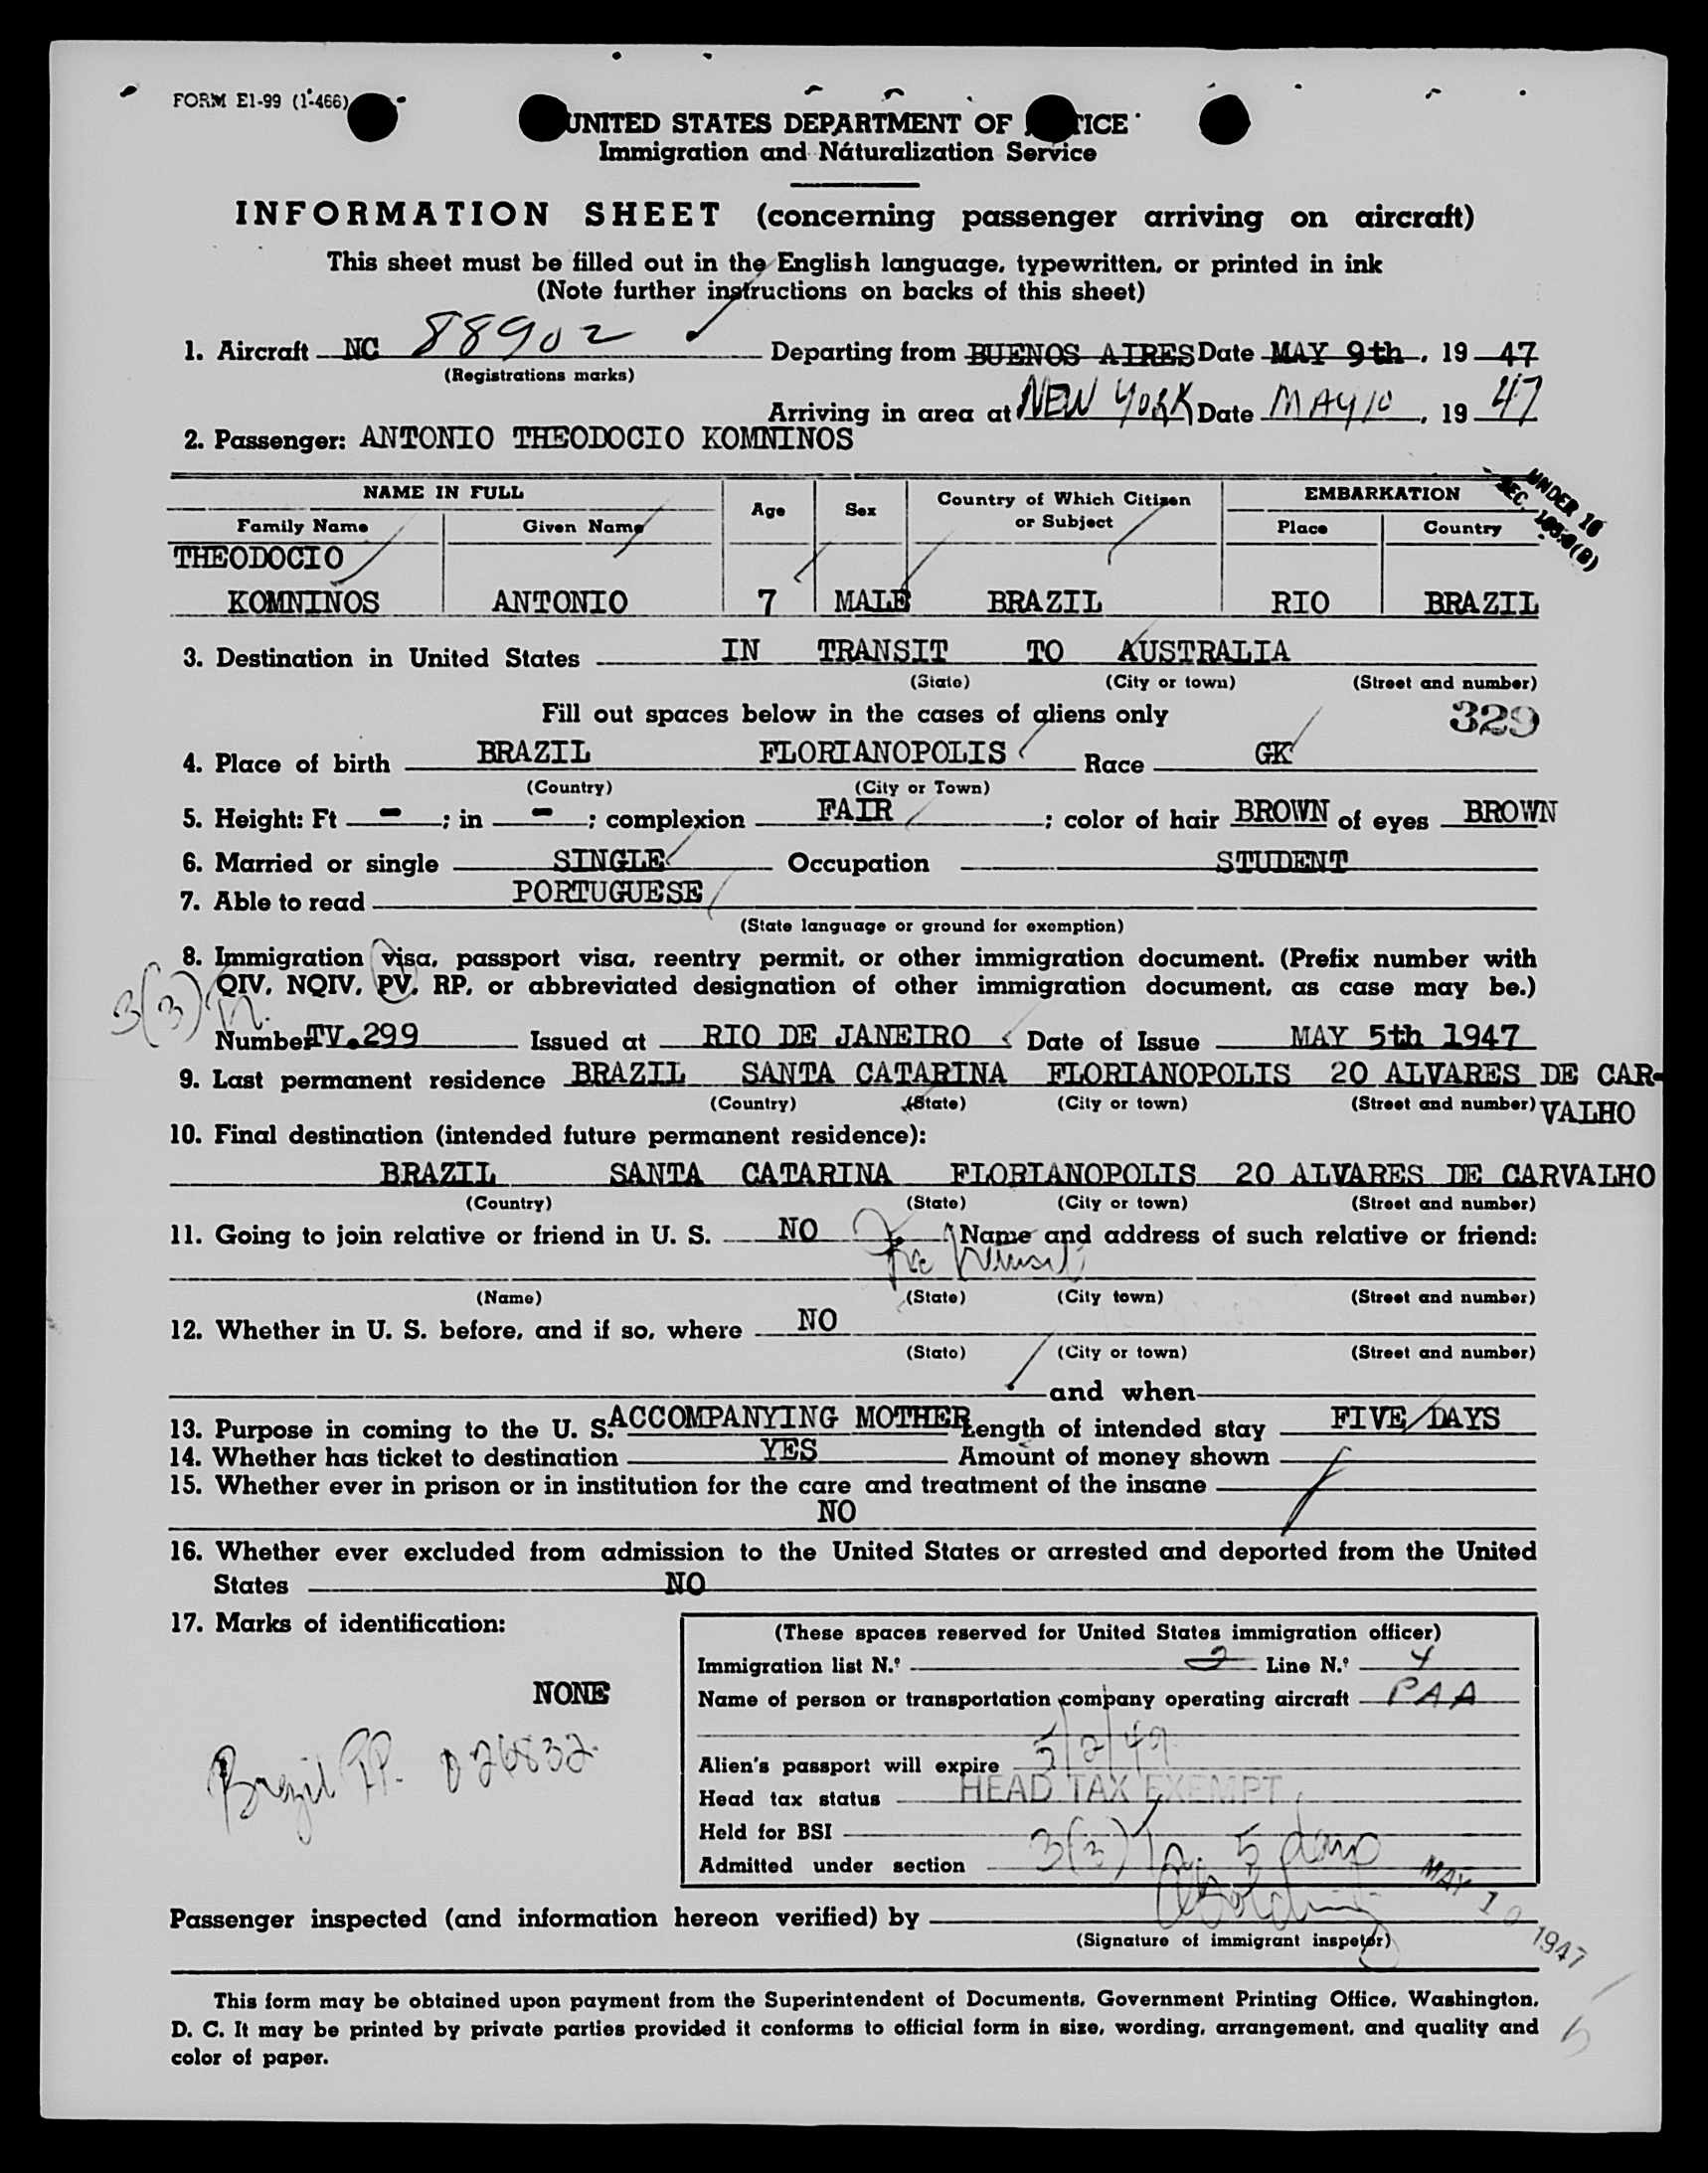 FORM E1-99 (1-466)
UNITED STATES DEPARTMENT OF TICE
Immigration and Naturalization Service
INFORMATION SHEET (concerning passenger arriving on aircraft)
This sheet must be filled out in the English language, typewritten, or printed in ink
(Note further instructions on backs of this sheet)
1. Aircraft NC 88902 Departing from BUENOS AIRES Date MAY 9th, 19 47
(Registrations marks)
Arriving in area at NEW YORK Date MAY 10, 19 47
2. Passenger: ANTONIO THEODOCIO KOMNINOS
UNDER 16
SEC.
NAME IN FULL Age Sex Country of Which Citizen or Subject EMBARKATION
Family Name Given Name Place Country
THEODOCIO
KOMNINOS ANTONIO 7 MALE BRAZIL RIO BRAZIL
3. Destination in United States IN TRANSIT TO AUSTRALIA
(State) (City or town) (Street and number)
Fill out spaces below in the cases of aliens only 329
4. Place of birth BRAZIL FLORIANOPOLIS Race GK
(Country) (City or Town)
5. Height: Ft - ; in - ; complexion FAIR ; color of hair BROWN of eyes BROWN
6. Married or single SINGLE Occupation STUDENT
7. Able to read PORTUGUESE
(State language or ground for exemption)
8. Immigration visa, passport visa, reentry permit, or other immigration document. (Prefix number with
QIV, NQIV, PV, RP, or abbreviated designation of other immigration document, as case may be.)
3(3)
Number TV.299 Issued at RIO DE JANEIRO Date of Issue MAY 5th 1947
9. Last permanent residence BRAZIL SANTA CATARINA FLORIANOPOLIS 20 ALVARES DE CAR-
(Country) (State) (City or town) (Street and number) VALHO
10. Final destination (intended future permanent residence):
BRAZIL SANTA CATARINA FLORIANOPOLIS 20 ALVARES DE CARVALHO
(Country) (State) (City or town) (Street and number)
11. Going to join relative or friend in U. S. NO Name and address of such relative or friend:
(Name) (State) (City town) (Street and number)
12. Whether in U. S. before, and if so, where NO
(State) (City or town) (Street and number)
and when
13. Purpose in coming to the U. S. ACCOMPANYING MOTHER Length of intended stay FIVE DAYS
14. Whether has ticket to destination YES Amount of money shown
15. Whether ever in prison or in institution for the care and treatment of the insane
NO
16. Whether ever excluded from admission to the United States or arrested and deported from the United
States NO
17. Marks of identification:
NONE
Brazil PP. 026832
(These spaces reserved for United States immigration officer)
Immigration list N.º 2 Line N.º 4
Name of person or transportation company operating aircraft PAA
Alien's passport will expire 5/2/49
Head tax status HEAD TAX EXEMPT
Held for BSI
Admitted under section 3(3) 5 days
MAY 10 1947
Passenger inspected (and information hereon verified) by
(Signature of immigrant inspetor)
This form may be obtained upon payment from the Superintendent of Documents, Government Printing Office, Washington,
D. C. It may be printed by private parties provided it conforms to official form in size, wording, arrangement, and quality and
color of paper.